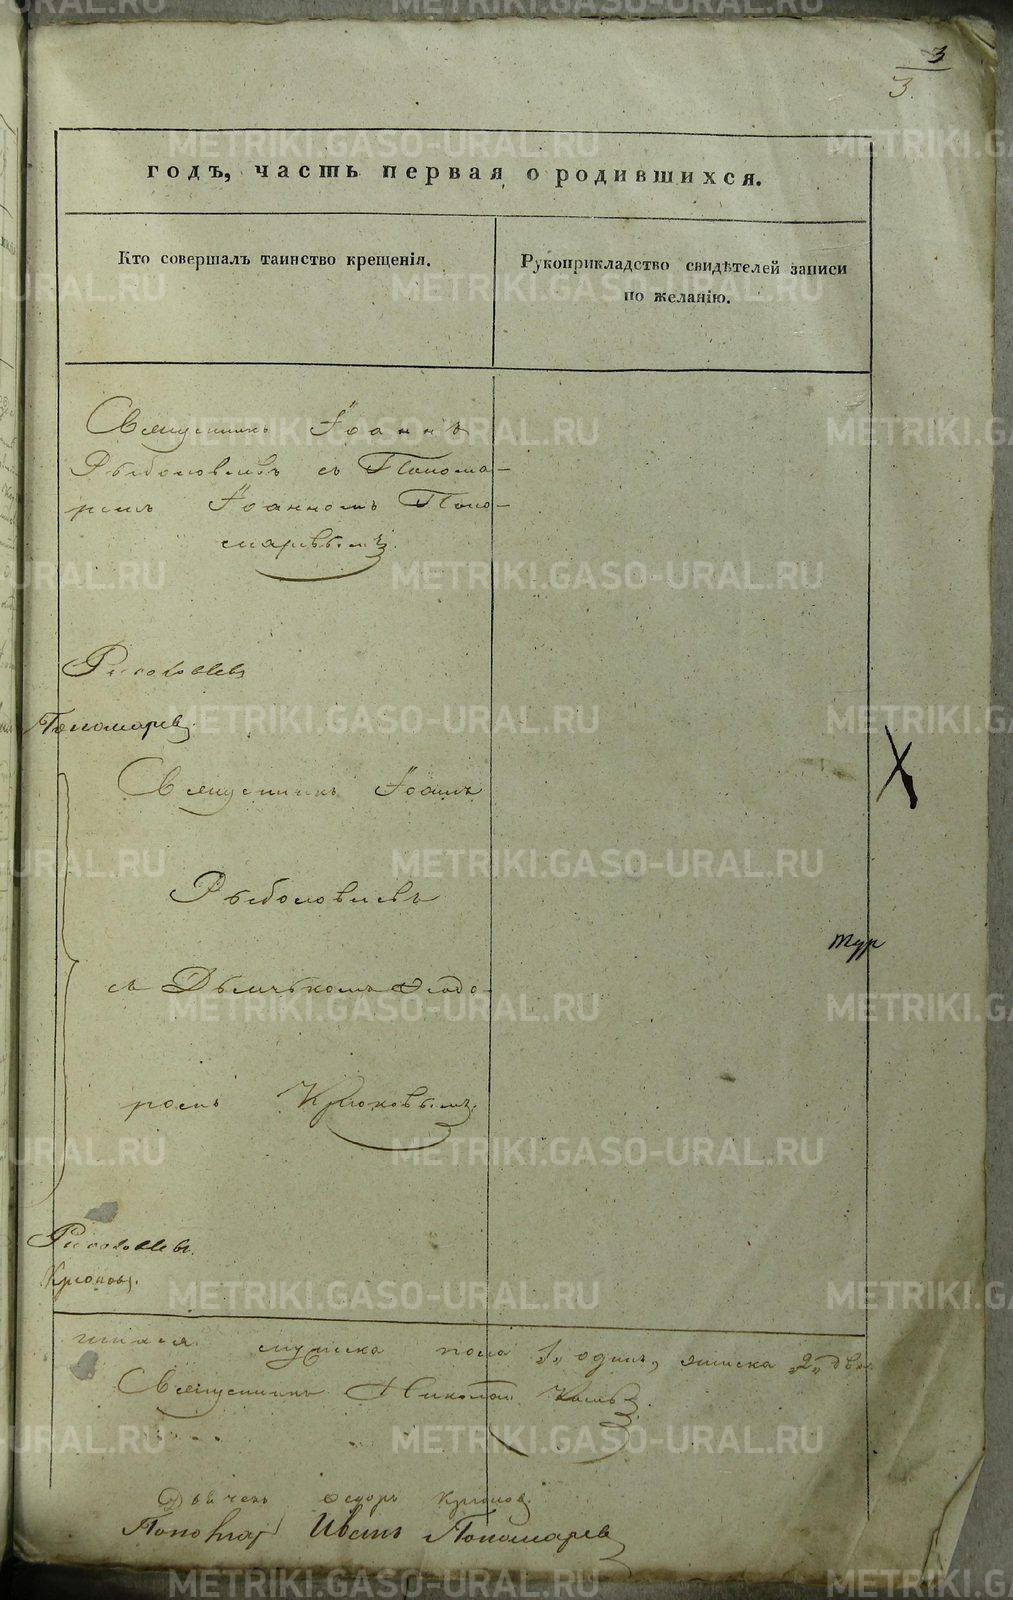 3
3.
годъ, часть первая о родившихся.
Кто совершалъ таинство крещенія.
Рукоприкладство свидѣтелей записи
по желанію.
Священникъ Іоаннъ
Рыболовлевъ съ Понома-
ремъ Іоанномъ Поно-
маревымъ.
Рыболовлевъ
Пономаревъ
Священникъ Іоаннъ
X
Рыболовлевъ
тур
съ Дьячькомъ Ѳеодо-
ромъ Крюковымъ.
Рыболовлевъ.
Крюковъ.
мужска пола 1, одинъ, женска 2, двѣ
Священникъ Николай
Дьячекъ Ѳедоръ Крюковъ
Пономарь Иванъ Пономаревъ
METRIKI.GASO-URAL.RU